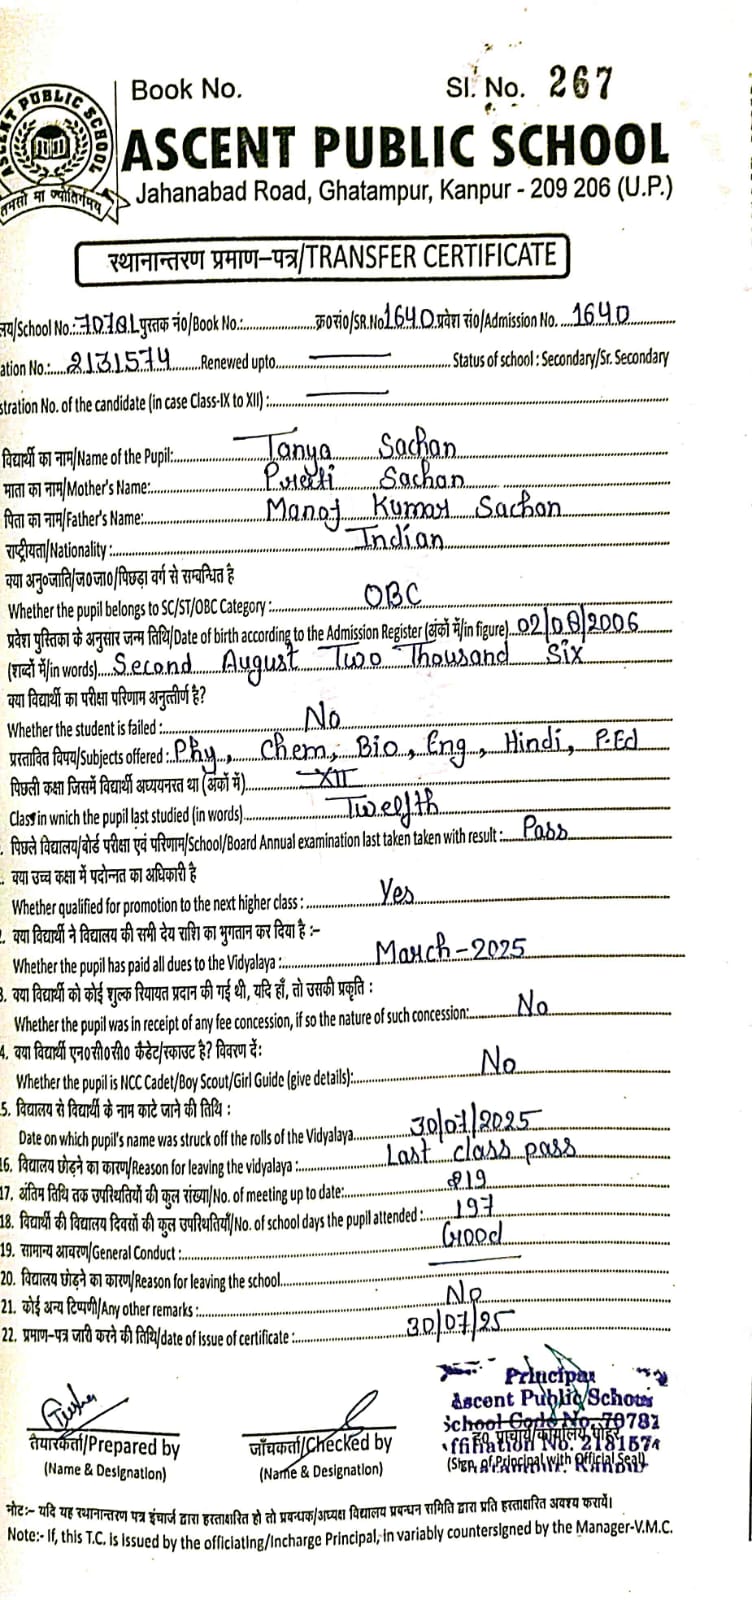 Book No. Sl. No. 267
ASCENT PUBLIC SCHOOL
तमसो मा ज्योतिर्गमय
ASCENT PUBLIC SCHOOL
Jahanabad Road, Ghatampur, Kanpur - 209 206 (U.P.)
स्थानान्तरण प्रमाण-पत्र/TRANSFER CERTIFICATE
लय/School No.: पुस्तक नं०/Book No.:............ क्र०सं०/SR.No 1640 प्रवेश सं०/Admission No. ....1640
ation No.:....2131574......Renewed upto............ Status of school : Secondary/Sr. Secondary
stration No. of the candidate (in case Class-IX to XII) :............
विद्यार्थी का नाम/Name of the Pupil:............ Tanya Sachan
माता का नाम/Mother's Name:............ Preeti Sachan
पिता का नाम/Father's Name:............ Manoj Kumar Sachan
राष्ट्रीयता/Nationality :............ Indian
क्या अनु०जाति/ज०जा०/पिछड़ा वर्ग से सम्बन्धित है
Whether the pupil belongs to SC/ST/OBC Category :............ OBC
प्रवेश पुस्तिका के अनुसार जन्म तिथि/Date of birth according to the Admission Register (अंकों में/in figure) 02/08/2006
(शब्दों में/in words).... Second August Two Thousand Six
क्या विद्यार्थी का परीक्षा परिणाम अनुत्तीर्ण है?
Whether the student is failed :............ No
प्रस्तावित विषय/Subjects offered : Phy, Chem, Bio, Eng, Hindi, P.Ed
पिछली कक्षा जिसमें विद्यार्थी अध्ययनरत था (अंकों में)............ XII
Class in wnich the pupil last studied (in words)............ Twelfth
. पिछले विद्यालय/बोर्ड परीक्षा एवं परिणाम/School/Board Annual examination last taken taken with result : Pass
. क्या उच्च कक्षा में पदोन्नत का अधिकारी है
Whether qualified for promotion to the next higher class :............ Yes
2. क्या विद्यार्थी ने विद्यालय की सभी देय राशि का भुगतान कर दिया है :-
Whether the pupil has paid all dues to the Vidyalaya :............ March-2025
3. क्या विद्यार्थी को कोई शुल्क रियायत प्रदान की गई थी, यदि हाँ, तो उसकी प्रकृति :
Whether the pupil was in receipt of any fee concession, if so the nature of such concession:............ No
4. क्या विद्यार्थी एन०सी०सी० कैडेट/स्काउट है? विवरण दें:
Whether the pupil is NCC Cadet/Boy Scout/Girl Guide (give details):............ No
5. विद्यालय से विद्यार्थी के नाम काटे जाने की तिथि :
Date on which pupil's name was struck off the rolls of the Vidyalaya............ 30/07/2025
16. विद्यालय छोड़ने का कारण/Reason for leaving the vidyalaya :............ Last class pass
17. अंतिम तिथि तक उपस्थितियों की कुल संख्या/No. of meeting up to date:............ 219
18. विद्यार्थी की विद्यालय दिवसों की कुल उपस्थितियाँ/No. of school days the pupil attended :............ 197
19. सामान्य आचरण/General Conduct :............ Good
20. विद्यालय छोड़ने का कारण/Reason for leaving the school............
21. कोई अन्य टिप्पणी/Any other remarks :............ No
22. प्रमाण-पत्र जारी करने की तिथि/date of issue of certificate :............ 30/07/25
Principal
Ascent Public School
School Code No. 70781
Affiliation No. 2131574
तैयारकर्ता/Prepared by जाँचकर्ता/Checked by ह० प्राचार्य/कार्यालय मोहर
(Name & Designation) (Name & Designation) (Sign of Principal with Official Seal)
नोट:- यदि यह स्थानान्तरण पत्र इंचार्ज द्वारा हस्ताक्षरित हो तो प्रबन्धक/अध्यक्ष विद्यालय प्रबन्धन समिति द्वारा प्रति हस्ताक्षरित अवश्य करायें।
Note:- If, this T.C. is issued by the officiating/Incharge Principal, in variably countersigned by the Manager-V.M.C.